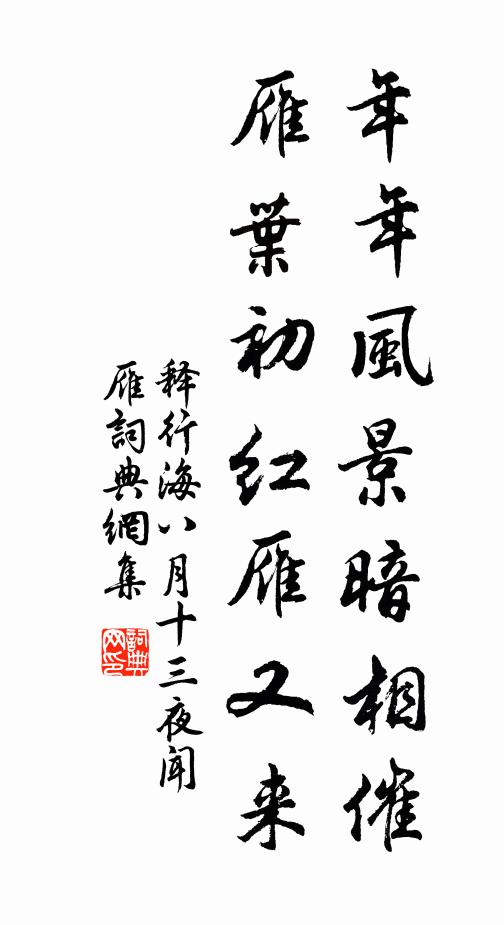 年年風景暗相催
雁葉初红雁又来
释行海八月十三夜聞
雁詞典網集
詞典网印